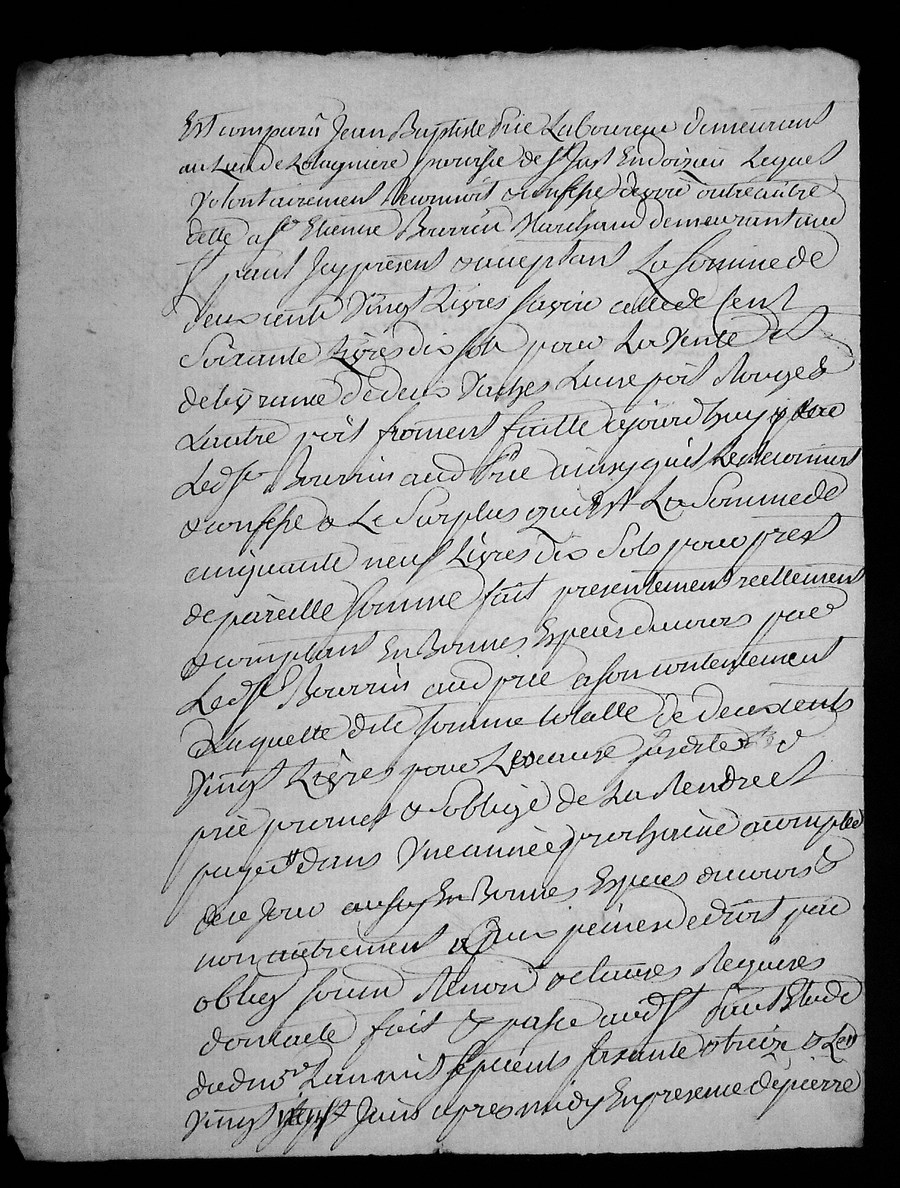 Est comparu Jean Baptiste Prie Laboureur demeurant
au Lieu de parroisse de St Just Endoizieu Lequel
Volontairement Reconnoit & confesse devoir outre autre
dette a Sr Etienne Bourrin Marchand demeurant aud
St paul Jcy present & acceptant La Somme de
deux cents Vingt Livres savoir celle de Cent
Soixante Livres dix sols pour La Vente et
delivrance de deux Vaches Lune poil Rouge &
Lautre poil froment faitte ajourdhuy par
Led Sr Bourrin aud Prie ainsy quil Le Reconnoit
& confesse & Le Surplus quiest La Somme de
cinquante neuf Livres dix Sols pour prest
de pareille somme fait presentement reellement
& comptant En Bonnes Especes ducours par
Led Sr Bourrin aud prie ason contentement
Laquelle dite somme totalle de deux cents
Vingt Livres pour Lescause susdite led
prie promet & soblige de La Rendre et
payer dans Vne année prochaine acompter
de ce Jour aussy En Bonnes Especes ducours &
non autrement apeines de droit par
oblig soum Renon & clauses Requises
dont acte fait & passé aud St paul Etude
dud nore Lan mil sept cents soixante & treize & Le
Vingt Juin apres midy En presence de pierre